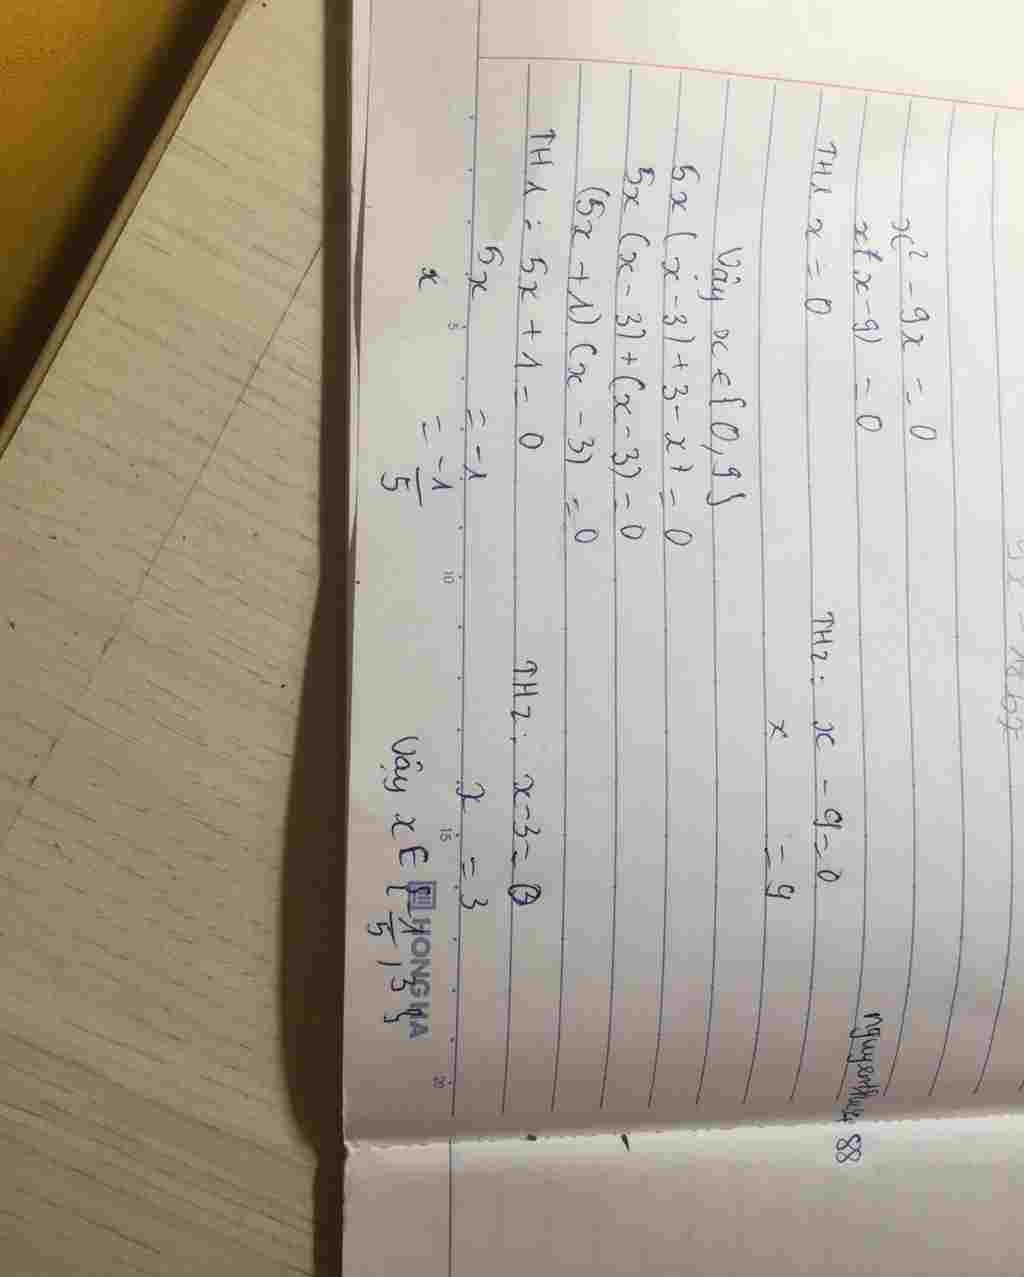 x² - 9x = 0
x(x-9) = 0
TH1 x = 0 TH2: x - 9 = 0
x = 9
Vậy x ∈ {0, 9}
5x (x-3) + 3 - x = 0
5x (x-3) + (x-3) = 0
(5x + 1) (x - 3) = 0
TH1: 5x + 1 = 0 TH2: x - 3 = 0
5x = -1 x = 3
x = -1/5 Vậy x ∈ {-1/5, 3}
HONG HA
5 10 15 20